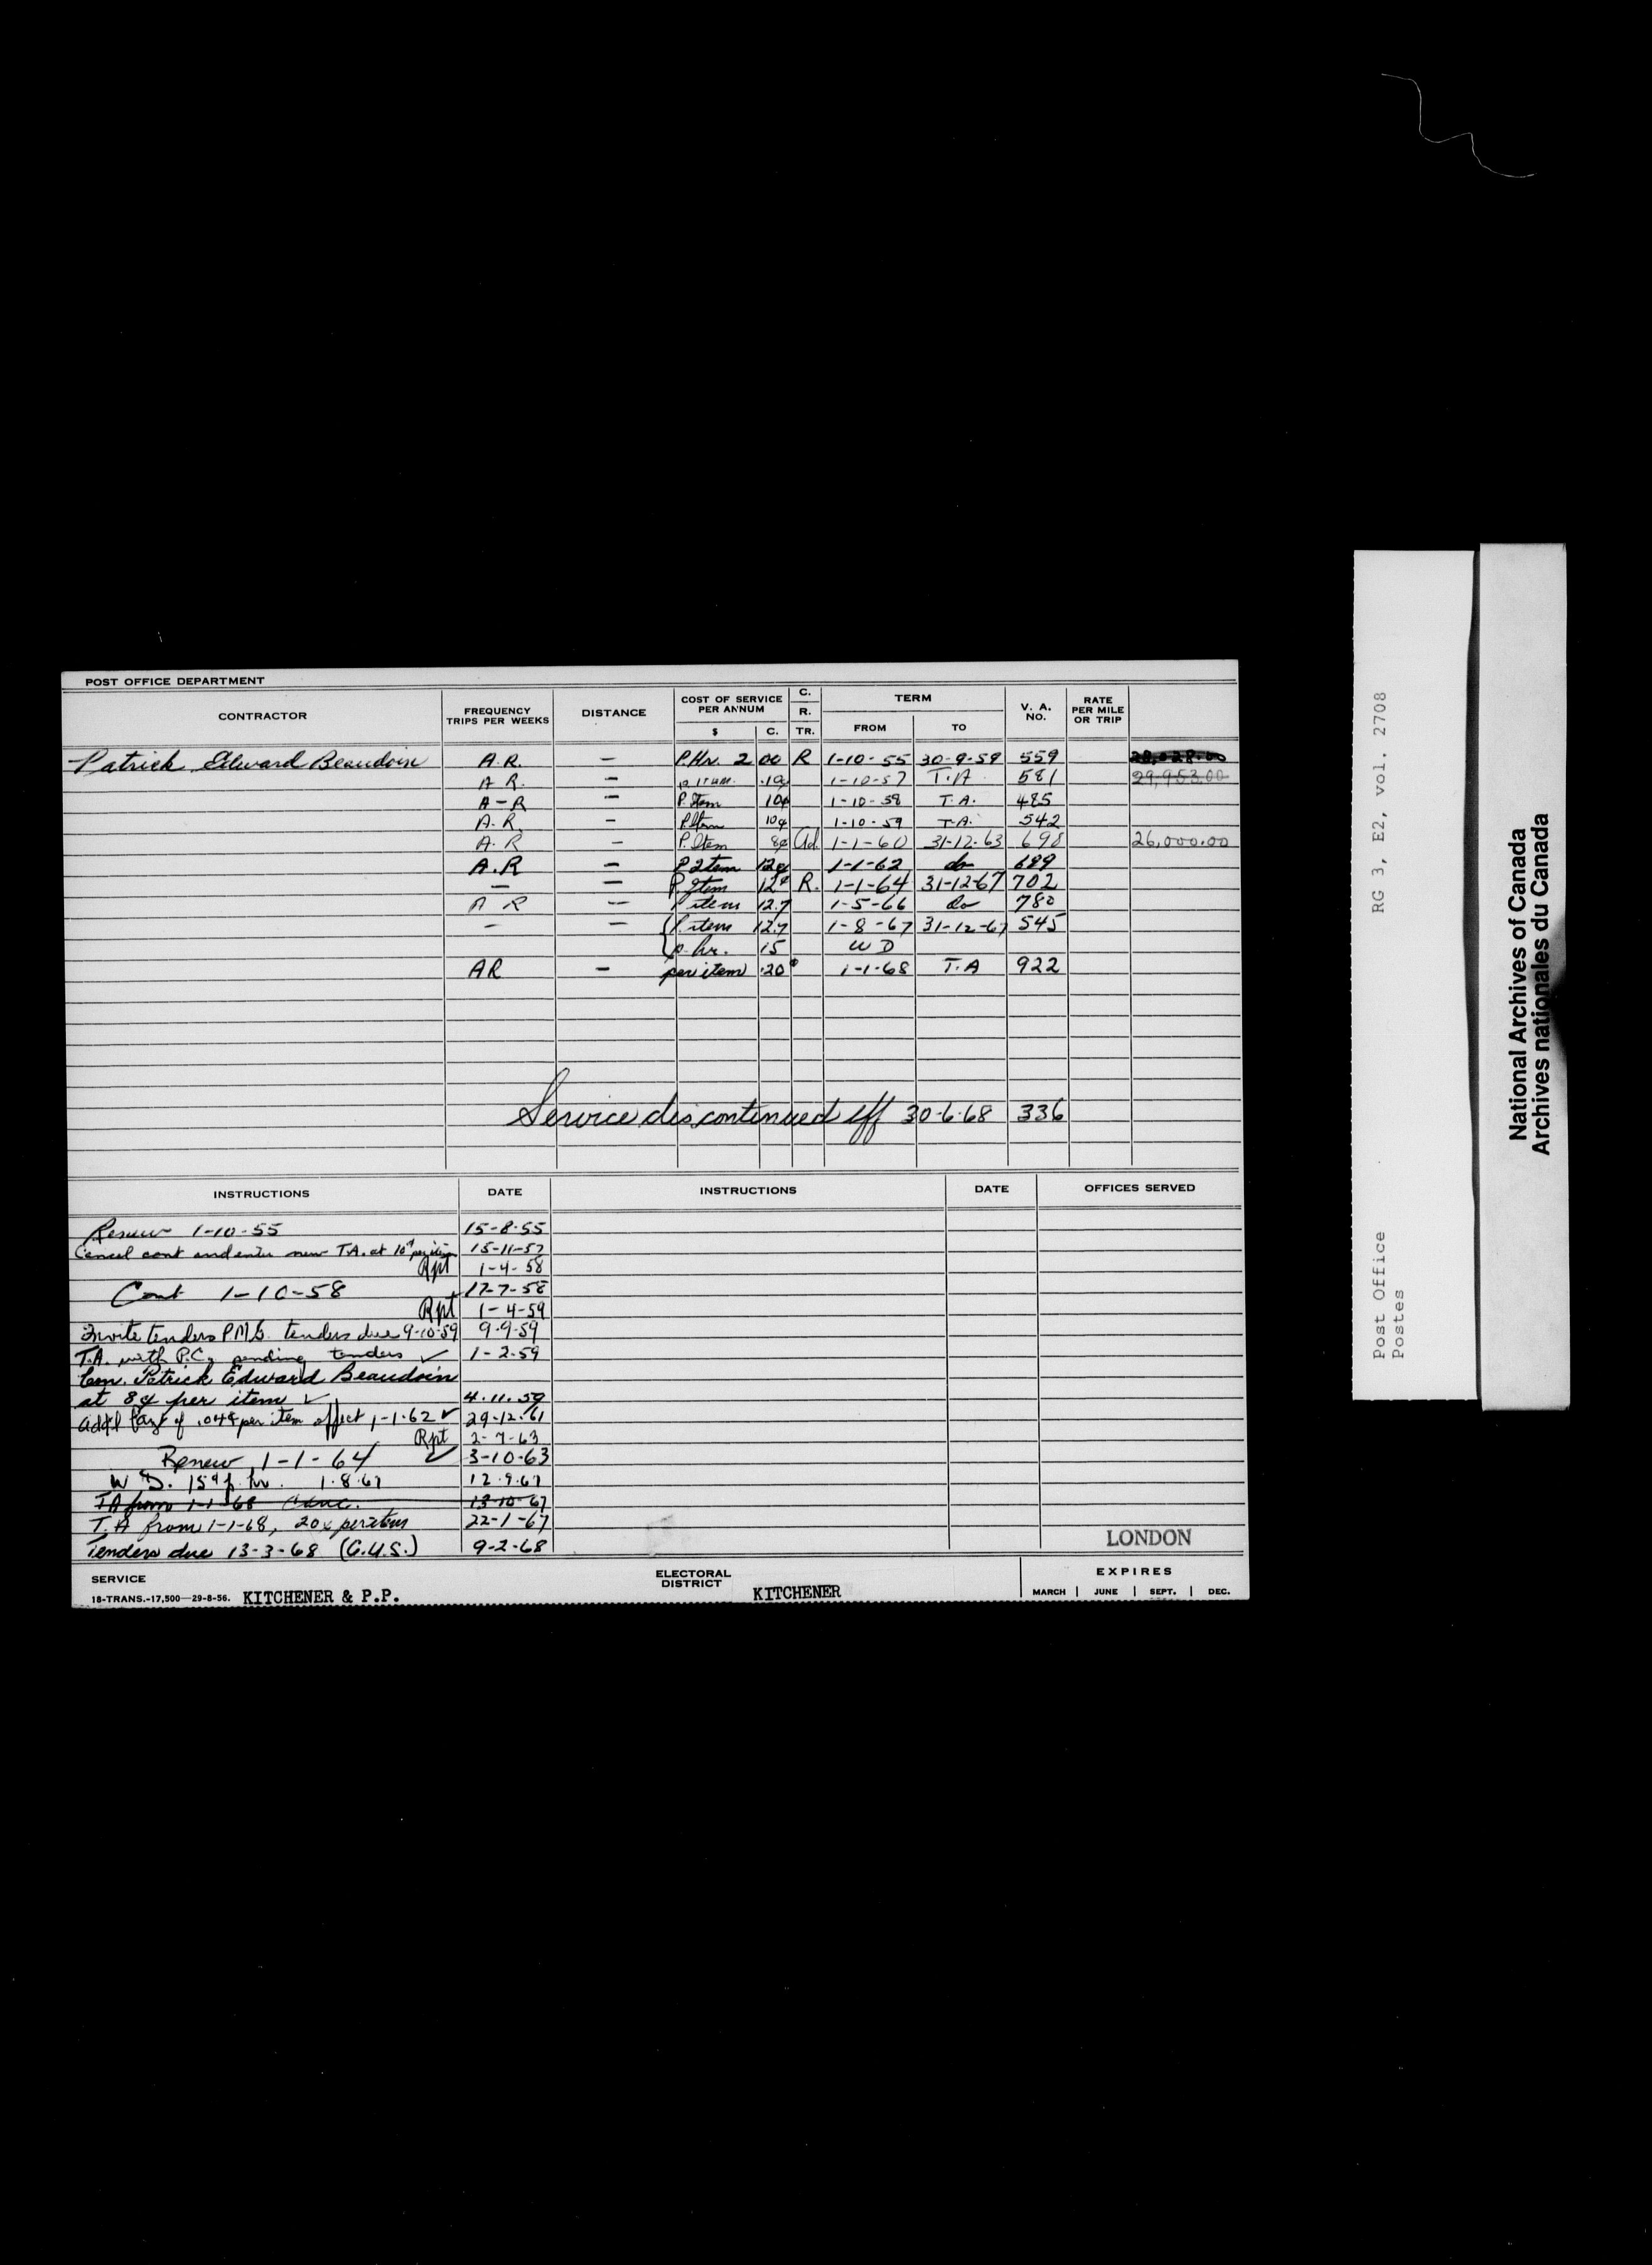 POST OFFICE DEPARTMENT
CONTRACTOR FREQUENCY TRIPS PER WEEKS DISTANCE COST OF SERVICE PER ANNUM $ C. C. R. TR. TERM FROM TO V. A. NO. RATE PER MILE OR TRIP
Patrick Edward Beaudoin A.R. — P.Hr. 2 00 R 1-10-55 30-9-59 559
A R. — p item .10¢ 1-10-57 T.A 581 29,953.00
A-R — P. Item 10¢ 1-10-58 T.A. 485
A.R. — P Item 10¢ 1-10-59 T.A. 542
A.R — P. Item 8¢ Ad. 1-1-60 31-12-63 698 26,000.00
A.R — P Item 12¢ 1-1-62 do 689
— — P. Item 12¢ R. 1-1-64 31-12-67 702
A R — P item 12.7 1-5-66 do 780
— — P. item 12.7 1-8-67 31-12-67 545
p. hr. 15 W D
AR — per item .20¢ 1-1-68 T.A 922
Service discontinued eff 30-6-68 336
INSTRUCTIONS DATE INSTRUCTIONS DATE OFFICES SERVED
Renew 1-10-55 15-8-55
Cancel cont and enter new T.A. at 10¢ per item 15-11-57
Rpt 1-4-58
Cont 1-10-58 17-7-58
Rpt 1-4-59
Invite tenders P.M.G. tenders due 9-10-59 9-9-59
T.A. with P.C. pending tenders ✓ 1-2-59
Con. Patrick Edward Beaudoin
at 8¢ per item ✓ 4.11.59
Add'l Payt of .04¢ per item effect 1-1-62 ✓ 29-12-61
Rpt 2-7-63
Renew 1-1-64 ✓ 3-10-63
W D. 15¢ p. hr. 1.8.67 12.9.67
TA from 1-1-68 canc. 13-10-67
T.A from 1-1-68, 20¢ per item 22-1-67
Tenders due 13-3-68 (G.U.S.) 9-2-68
LONDON
SERVICE ELECTORAL DISTRICT EXPIRES
18-TRANS.-17,500—29-8-56. KITCHENER & P.P. KITCHENER MARCH | JUNE | SEPT. | DEC.
Post Office RG 3, E2, vol. 2708
Postes
National Archives of Canada
Archives nationales du Canada